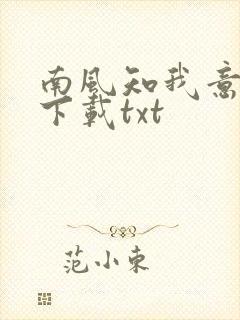 南風知我意
下載txt
范小東